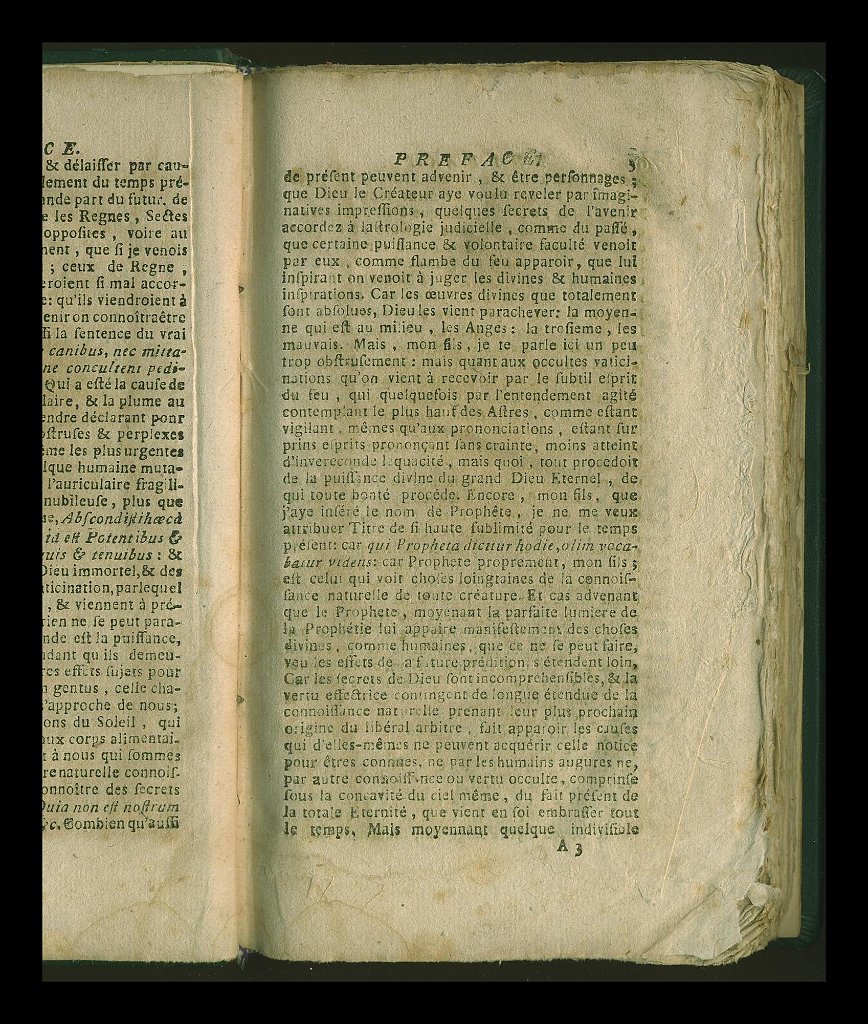 C E.
& délaiſſer par cau-
lement du temps pré-
nde part du futur, de
e les Regnes, Sectes
oppoſites, voire au
nent, que ſi je venois
; ceux de Regne,
eroient ſi mal accor-
e: qu'ils viendroient à
enir on connoîtraêtre
ſi la ſentence du vrai
canibus, nec mitta-
ne conculcent pedi-
Qui a eſté la cauſe de
laire, & la plume au
endre déclarant ponr
oſtruſes & perplexes
eme les plus urgentes
lque humaine muta-
l'auriculaire fragili-
nubileuſe, plus que
ne, Abſcondiſtihæcà
id eſt Potentibus &
uis & tenuibus: &
Dieu immortel, & des
ticination, parlequel
, & viennent à pré-
rien ne ſe peut para-
nde eſt la puiſſance,
dant qu ils demeu-
res effets ſujets pour
n gentus, celle cha-
l'approche de nous;
ons du Soleil, qui
aux corps alimentai-
t à nous qui ſommes
re naturelle connoiſ-
onnoître des ſecrets
Quia non eſt noſtrum
&c. Combien qu'auſſi
PREFACE. 5
de préſent peuvent advenir, & être perſonnages;
que Dieu le Créateur aye voulu reveler par imagi-
natives impreſſions, quelques ſecrets de l'avenir
accordez à laſtrologie judicielle, comme du paſſé,
que certaine puiſſance & volontaire faculté venoit
par eux, comme flambe du feu apparoir, que lui
inſpirant on venoit à juger les divines & humaines
inſpirations. Car les œuvres divines que totalement
ſont abſolues, Dieu les vient parachever: la moyen-
ne qui eſt au milieu, les Anges: la troſieme, les
mauvais. Mais, mon fils, je te parle ici un peu
trop obſtruſement: mais quant aux occultes vatici-
nations qu'on vient à recevoir par le ſubtil eſprit
du feu, qui quelquefois par l'entendement agité
contemplant le plus haut des Aſtres, comme eſtant
vigilant, mêmes qu'aux prononciations, eſtant ſur
prins eſprits prononçant ſans crainte, moins atteint
d'invereconde loquacité, mais quoi, tout procedoit
de la puiſſance divine du grand Dieu Eternel, de
qui toute bonté procéde. Encore, mon fils, que
j'aye inſéré le nom de Prophéte, je ne me veux
attribuer Titre de ſi haute ſublimité pour le temps
préſent: car qui Propheta dicitur hodie, olim voca-
batur videns: car Prophete proprement, mon fils;
eſt celui qui voit choſes loingtaines de la connoiſ-
ſance naturelle de toute créature. Et cas advenant
que le Prophete, moyenant la parfaite lumiere de
la Prophétie lui appaire manifeſtement des choſes
divines, comme humaines, que ce ne ſe peut faire,
veu les effets de la future prédition s'étendent loin,
Car les ſecrets de Dieu ſont incomprehenſibles, & la
vertu effectrice contingent de longue étendue de la
connoiſſance naturelle prenant leur plus prochain
origine du libéral arbitre, fait apparoir les cauſes
qui d'elles-mêmes ne peuvent acquérir celle notice
pour êtres connues, ne par les humains augures ne,
par autre connoiſſance ou vertu occulte, comprinſe
ſous la concavité du ciel même, du fait préſent de
la totale Eternité, que vient en ſoi embraſſer tout
le temps, Mais moyennant quelque indiviſible
A 3